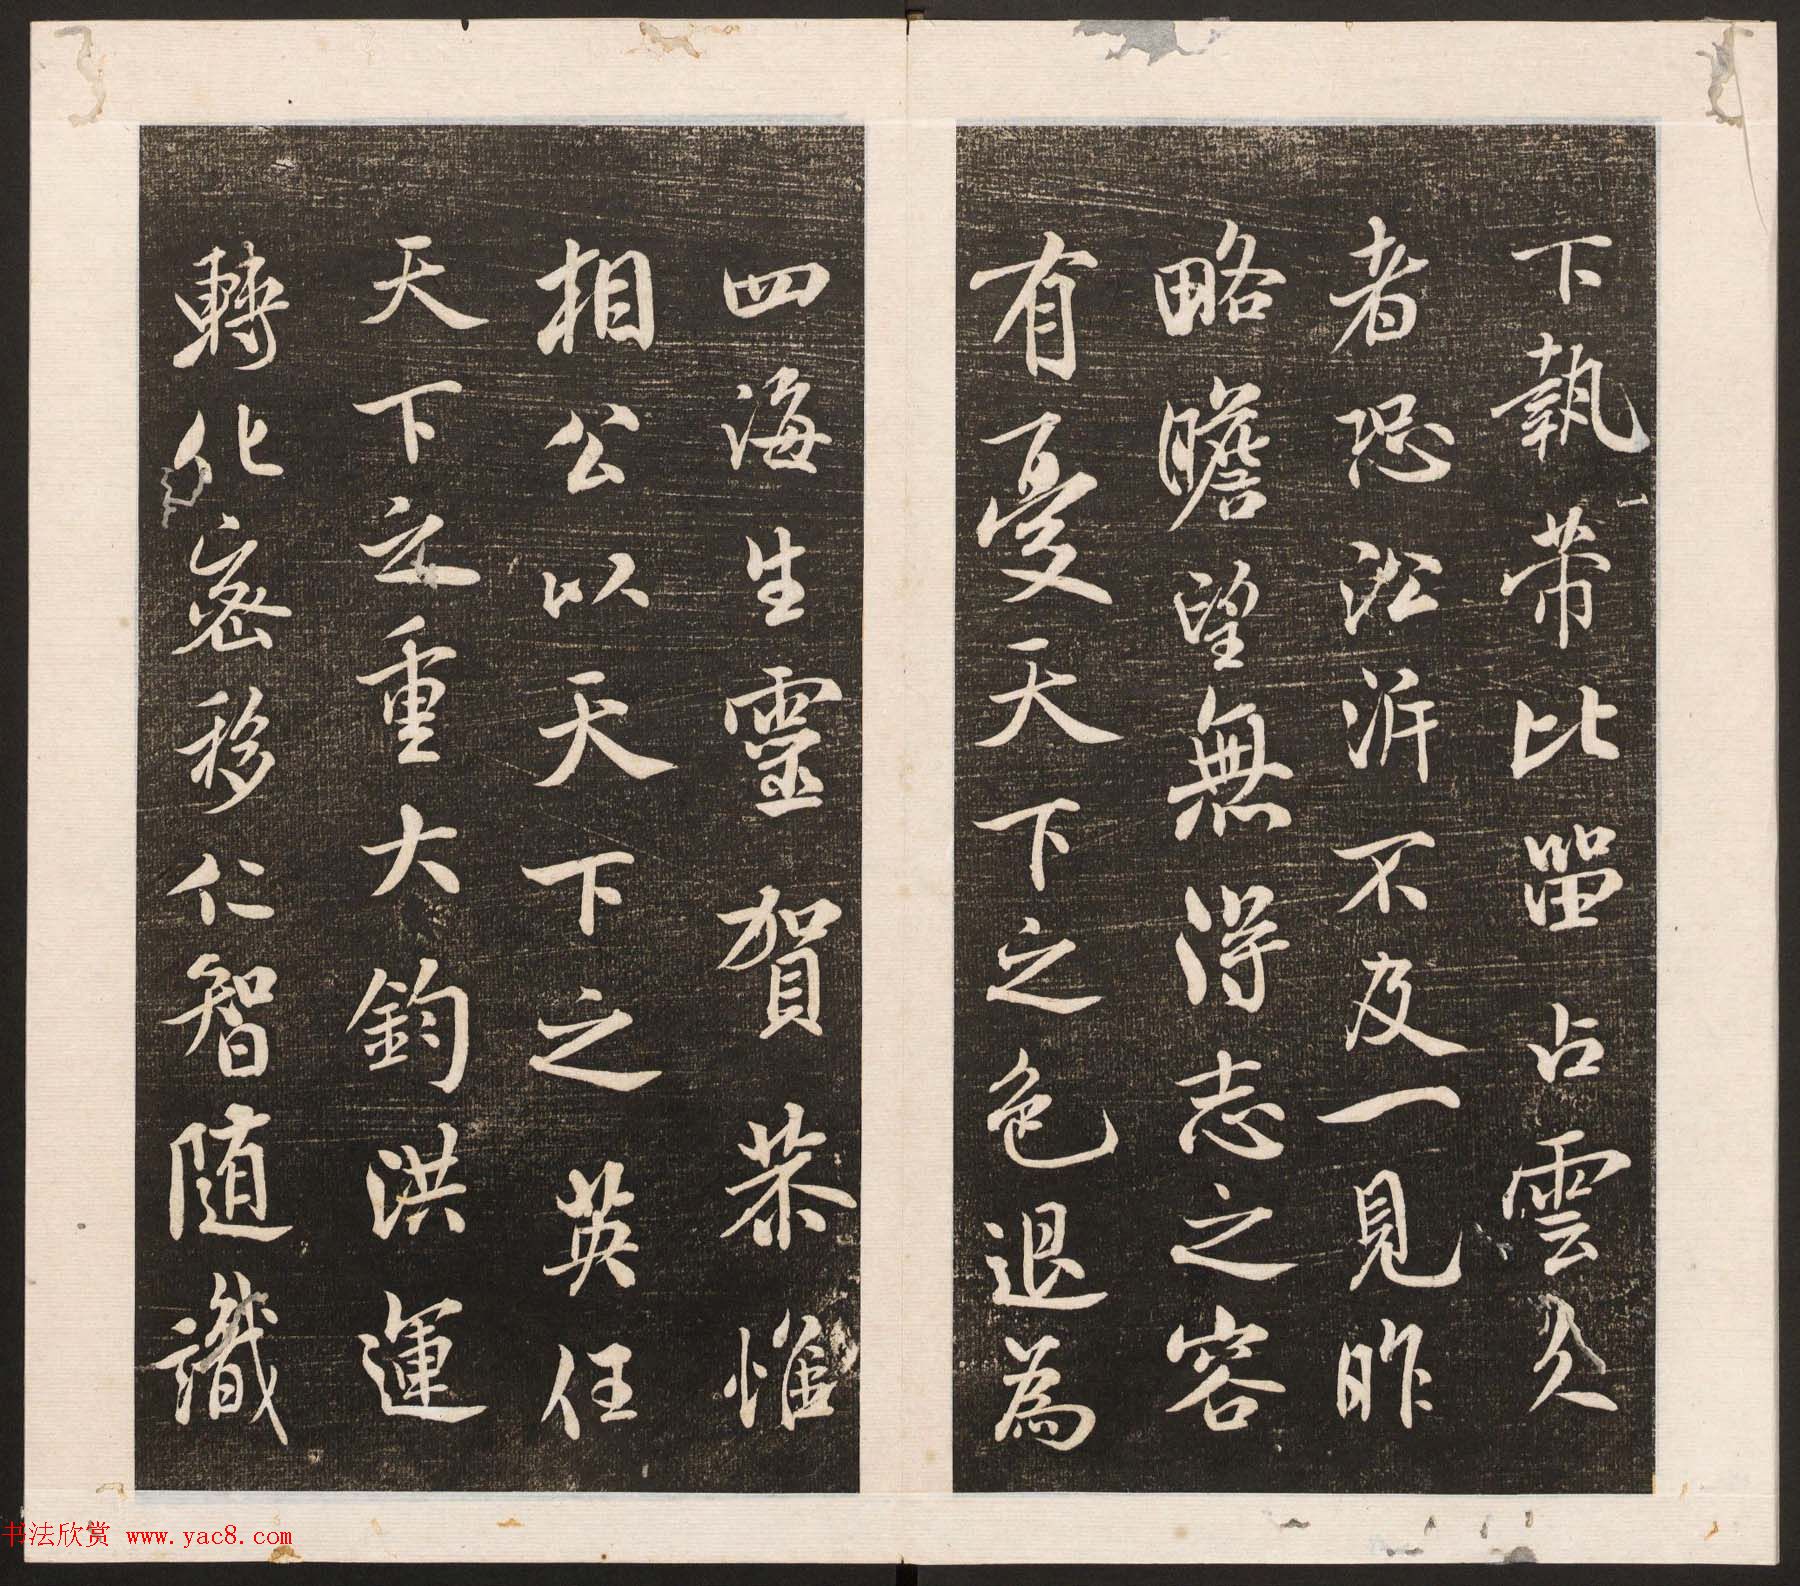 下執芾比留占雲久
者恐沿泝不及一見昨
略瞻望無得志之容
有憂天下之色退為
四海生靈賀恭惟
相公以天下之英任
天下之重大鈞洪運
轉化密移仁智隨識
书法欣赏 www.yac8.com